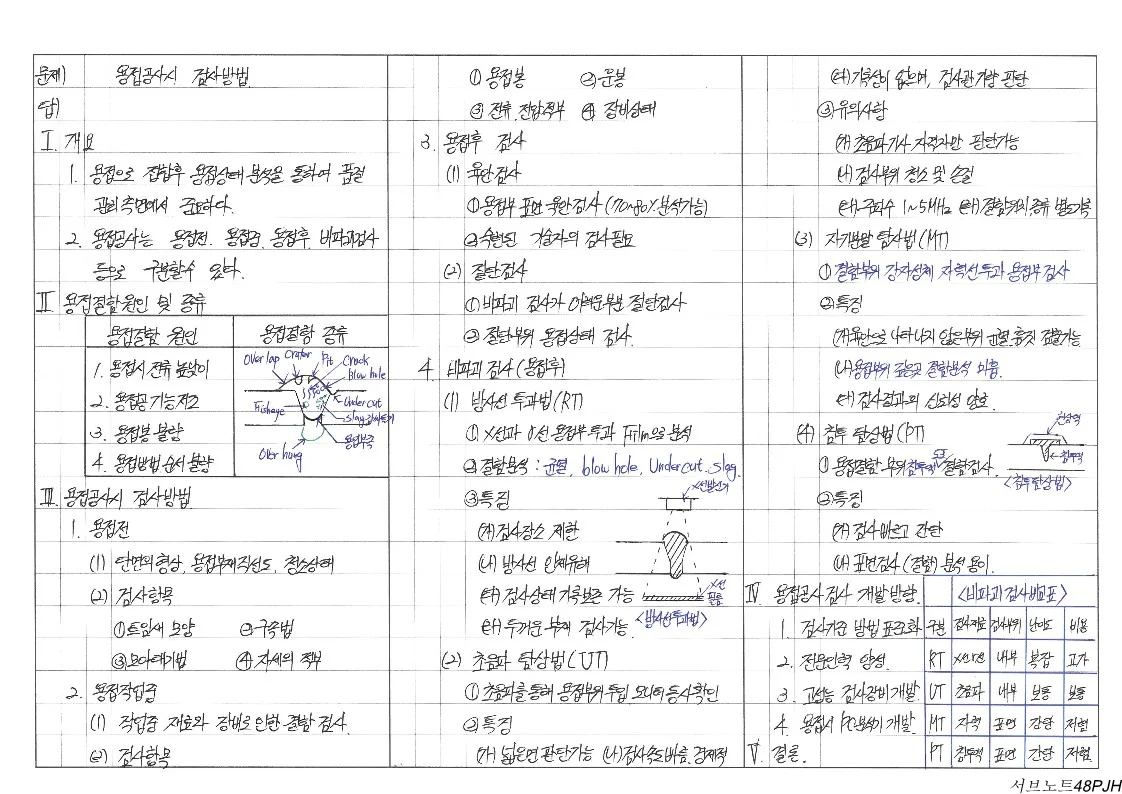 문제) 용접공사시 검사방법
답)
I. 개요
1. 용접으로 접합후 용접상태 분석을 통하여 품질
관리측면에서 중요하다.
2. 용접공사는 용접전. 용접중. 용접후, 비파괴검사
등으로 구분할수 있다.
II. 용접결함 원인 및 종류
용접결함 원인
1. 용접시 전류 높낮이
2. 용접공 기능저조
3. 용접봉 불량
4. 용접방법 순서 불량
용접결함 종류
Over lap
Crater
Pit
Crack
Blow hole
Fisheye
Under cut
slag 감싸들기
용입부족
Over hung
III. 용접공사시 검사방법
1. 용접전
(1) 단면의형상, 용접부재직선도, 청소상태
(2) 검사항목
① 트임새 모양 ② 구속법
③ 모아대기법 ④ 자세의 적부
2. 용접작업중
(1) 작업중 재료와 장비로인한 결함 검사.
(2) 검사항목
① 용접봉 ② 운봉
③ 전류.전압적부 ④ 장비상태
3. 용접후 검사
(1) 육안검사
① 용접부 표면 육안검사 (70~80% 분석가능)
② 숙련된 기술자의 검사필요
(2) 절단검사
① 비파괴 검사가 어려운부분 절단검사
② 절단부위 용접상태 검사.
4. 비파괴 검사 (용접후)
(1) 방사선 투과법 (RT)
① X선과 γ선 용접부 투과 Film으로 분석
② 결함분석 : 균열, blow hole, Under cut, slag.
③ 특징
(가) 검사장소 제한
(나) 방사선 인체유해
(다) 검사상태 기록보존 가능
(라) 두꺼운 부재 검사가능.
X선발생기
X선
필름
<방사선투과법>
(2) 초음파 탐상법 (UT)
① 초음파를 통해 용접부위 투입 모니터 등사확인
② 특징
(가) 넓은면 판단가능 (나) 검사속도빠름, 경제적
(다) 기록성이 없으며, 검사관 기량 판단
③ 유의사항
(가) 초음파기사 자격자만 판단가능
(나) 검사부위 청소 및 손질
(다) 주파수 1~5MHz (라) 결함위치, 종류 별도기록
(3) 자기분말 탐상법 (MT)
① 결함부위 강자성체 자력선투과 용접부 검사
② 특징
(가) 육안으로 나타나지 않은부위 균열.흠집 검출가능
(나) 용접부위 깊은곳 결함분석 미흡.
(다) 검사결과의 신뢰성 양호.
(4) 침투 탐상법 (PT)
① 용접결함 부위 침투액 도포 결함검사.
② 특징
(가) 검사빠르고 간단
(나) 표면검사 (결함) 분석 용이.
현상액
침투액
<침투탐상법>
IV. 용접공사 검사 개발방향.
1. 검사기준 방법 표준화
2. 전문인력 양성.
3. 고성능 검사장비 개발
4. 용접시 PC분석기 개발
V. 결론.
<비파괴검사비교표>
구분 검사재료 검사부위 난이도 비용
RT X선.γ선 내부 복잡 고가
UT 초음파 내부 보통 보통
MT 자력 표면 간단 저렴
PT 침투액 표면 간단 저렴
서브노트48PJH